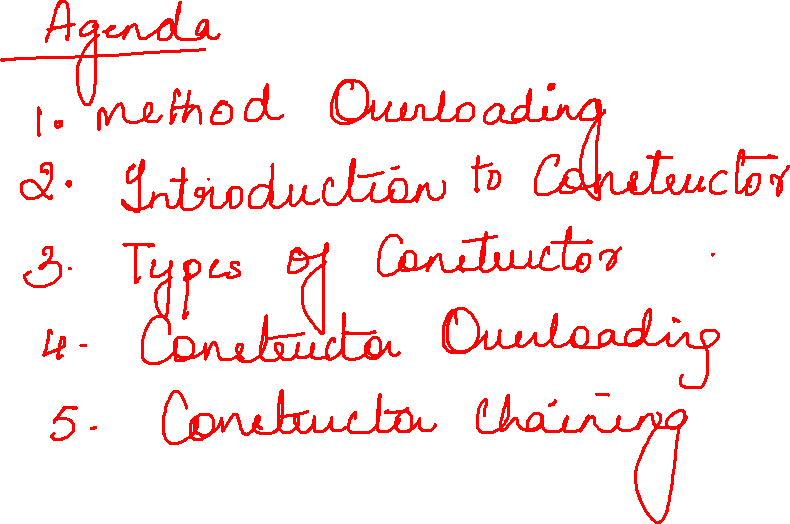 Agenda
1. Method Overloading
2. Introduction to Constructor
3. Types of Constructor
4. Constructor Overloading
5. Constructor Chaining